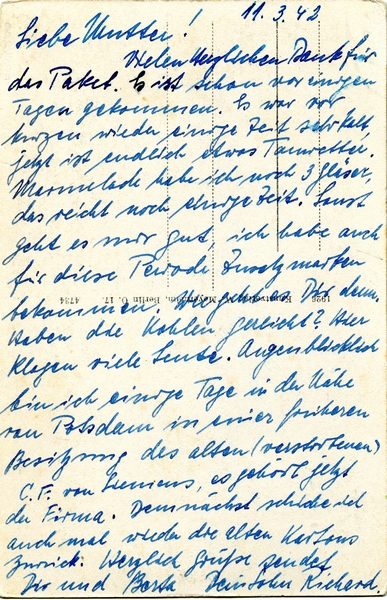 11.3.42
Liebe Mutter!
Vielen Herzlichen Dank für
das Paket. Es ist schon vor einigen
Tagen gekommen. Es war vor
kurzem wieder einige Zeit sehr kalt,
jetzt ist endlich etwas Tauwetter.
Marmelade habe ich noch 3 Gläser,
das reicht noch einige Zeit. Sonst
geht es mir gut, ich habe auch
für diese Periode Zusatzmarken
bekommen. Wie geht es Dir denn,
haben die Kohlen gereicht? Hier
klagen viele Leute. Augenblicklich
bin ich einige Tage in der Nähe
von Potsdam in einer früheren
Besitzung des alten (verstorbenen)
C.F. von Siemens, es gehört jetzt
der Firma. Demnächst schicke ich
auch mal wieder die alten Kartons
zurück. Herzlich Grüße sendet
Dir und Berta Dein Sohn Richard.
1926 Kunstverlag M. Meyerheim, Berlin O. 17. 4734